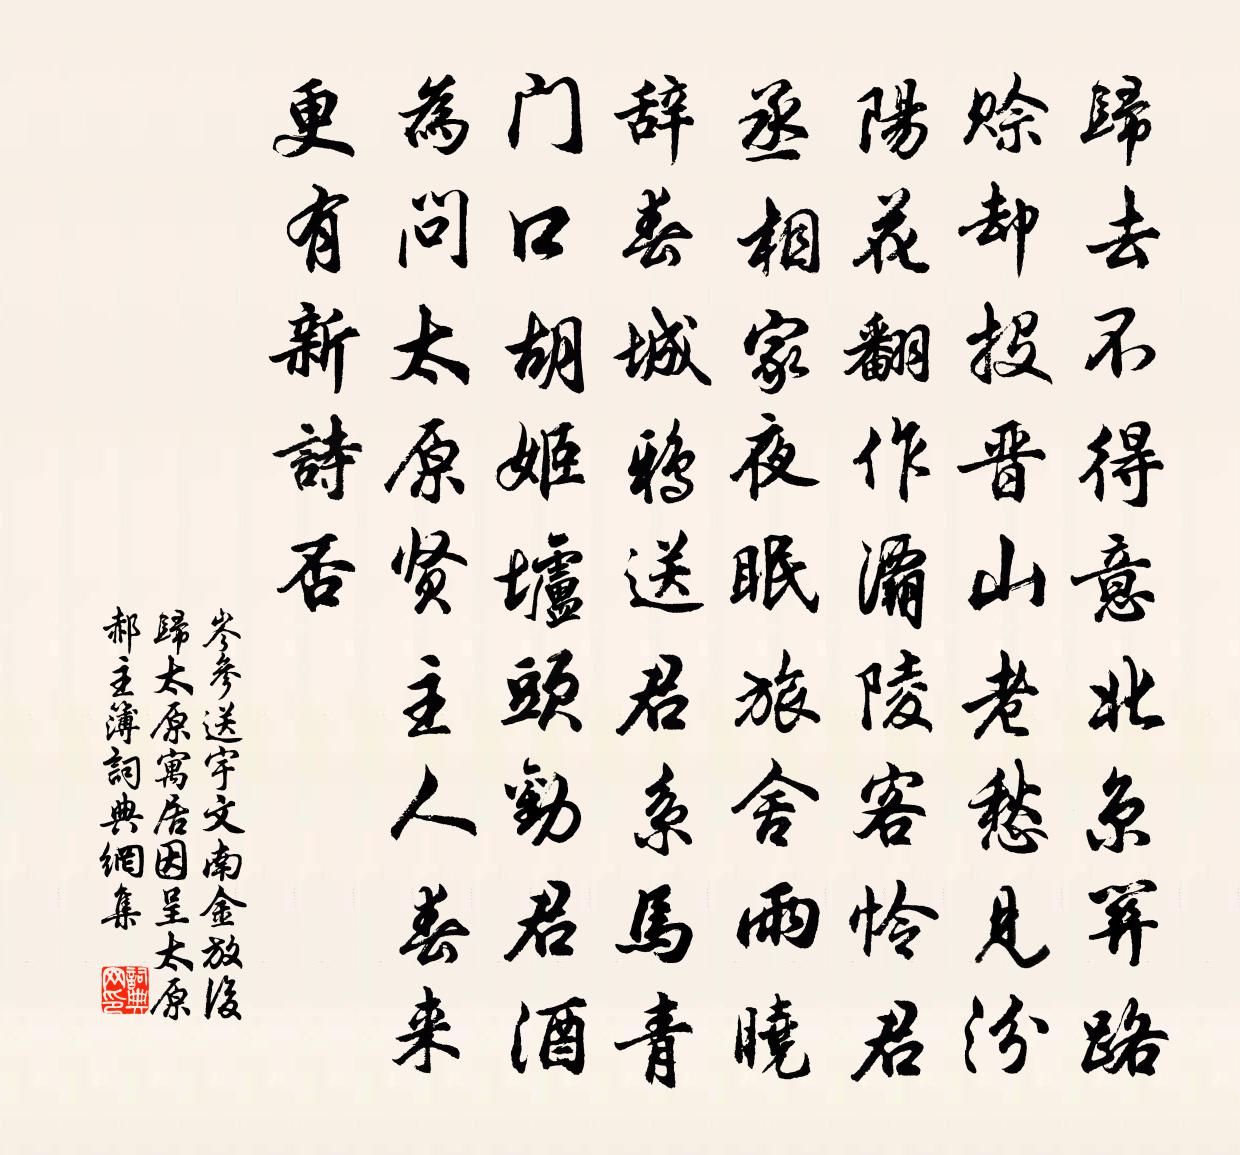 歸去不得意北京關路
賒却投晋山老愁見汾
陽花翻作灞陵客怜君
丞相家夜眠旅舍雨曉
辞春城鴉送君系馬青
门口胡姬壚頭勸君酒
為問太原贤主人春来
更有新詩否
岑參送宇文南金放後
歸太原寓居因呈太原
郝主簿詞典網集
詞典网印